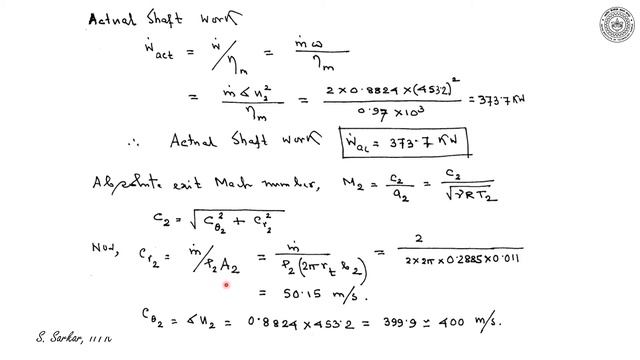 Actual Shaft work
Ẇact = ẇ/ηm = ṁω/ηm
= ṁ ς u₂²/ηm = 2 × 0.8824 × (453.2)²/0.97 × 10³ = 373.7 KW
∴ Actual Shaft work Ẇac = 373.7 KW
Absolute exit Mach number, M₂ = C₂/a₂ = C₂/√γRT₂
C₂ = √Cθ₂² + Cr₂²
Now, Cr₂ = ṁ/ρ₂A₂ = ṁ/ρ₂(2πrt b₂) = 2/2 × 2π × 0.2885 × 0.011
= 50.15 m/s.
Cθ₂ = ς u₂ = 0.8824 × 453.2 = 399.9 ≃ 400 m/s.
S. Sarkar, IITK